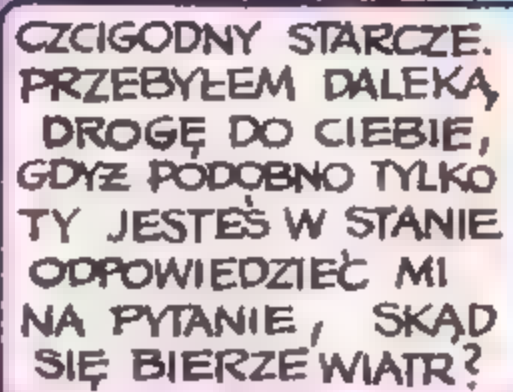 CZCIGODNY STARCZE.
PRZEBYŁEM DALEKĄ
DROGĘ DO CIEBIE,
GDYŻ PODOBNO TYLKO
TY JESTEŚ W STANIE
ODPOWIEDZIEĆ MI
NA PYTANIE, SKĄD
SIĘ BIERZE WIATR?